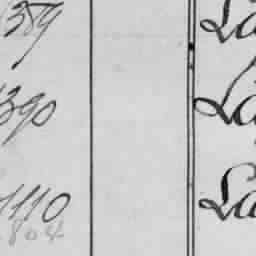 389 La
390 La
1110 La
804